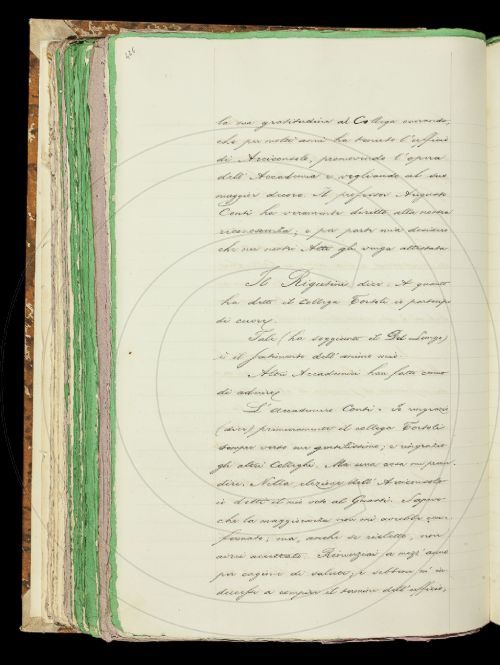 426
la sua gratitudine al Collega onorando,
che per molti anni ha tenuto l'ufficio
di Arciconsolo, promovendo l'opera
dell'Accademia e vegliando al suo
maggior decoro. Il professor Augusto
Conti ha veramente diritto alla nostra
riconoscenza; e per parte mia desidero
che nei nostri Atti gli venga attestata
Il Rigutini dice. A quanto
ha detto il collega Tortoli io partecipo
di cuore.
Tale (ha soggiunto il Del Lungo)
è il sentimento dell'animo mio.
Altri Accademici han fatto cenno
di aderire.
L'Accademico Conti. Io ringrazio
(dice) primieramente il collega Tortoli
sempre verso me gentilissimo; e ringrazio
gli altri Colleghi. Ma una cosa mi preme
dire. Nella elezione dell'Arciconsolo
io detti il mio voto al Guasti. Sapevo
che la maggioranza non mi avrebbe con-
fermato; ma, anche se rieletto, non
avrei accettato. Rinunziai a mezz'anno
per cagione di salute; e sebbene mi in-
ducessi a compire il termine dell'ufficio,